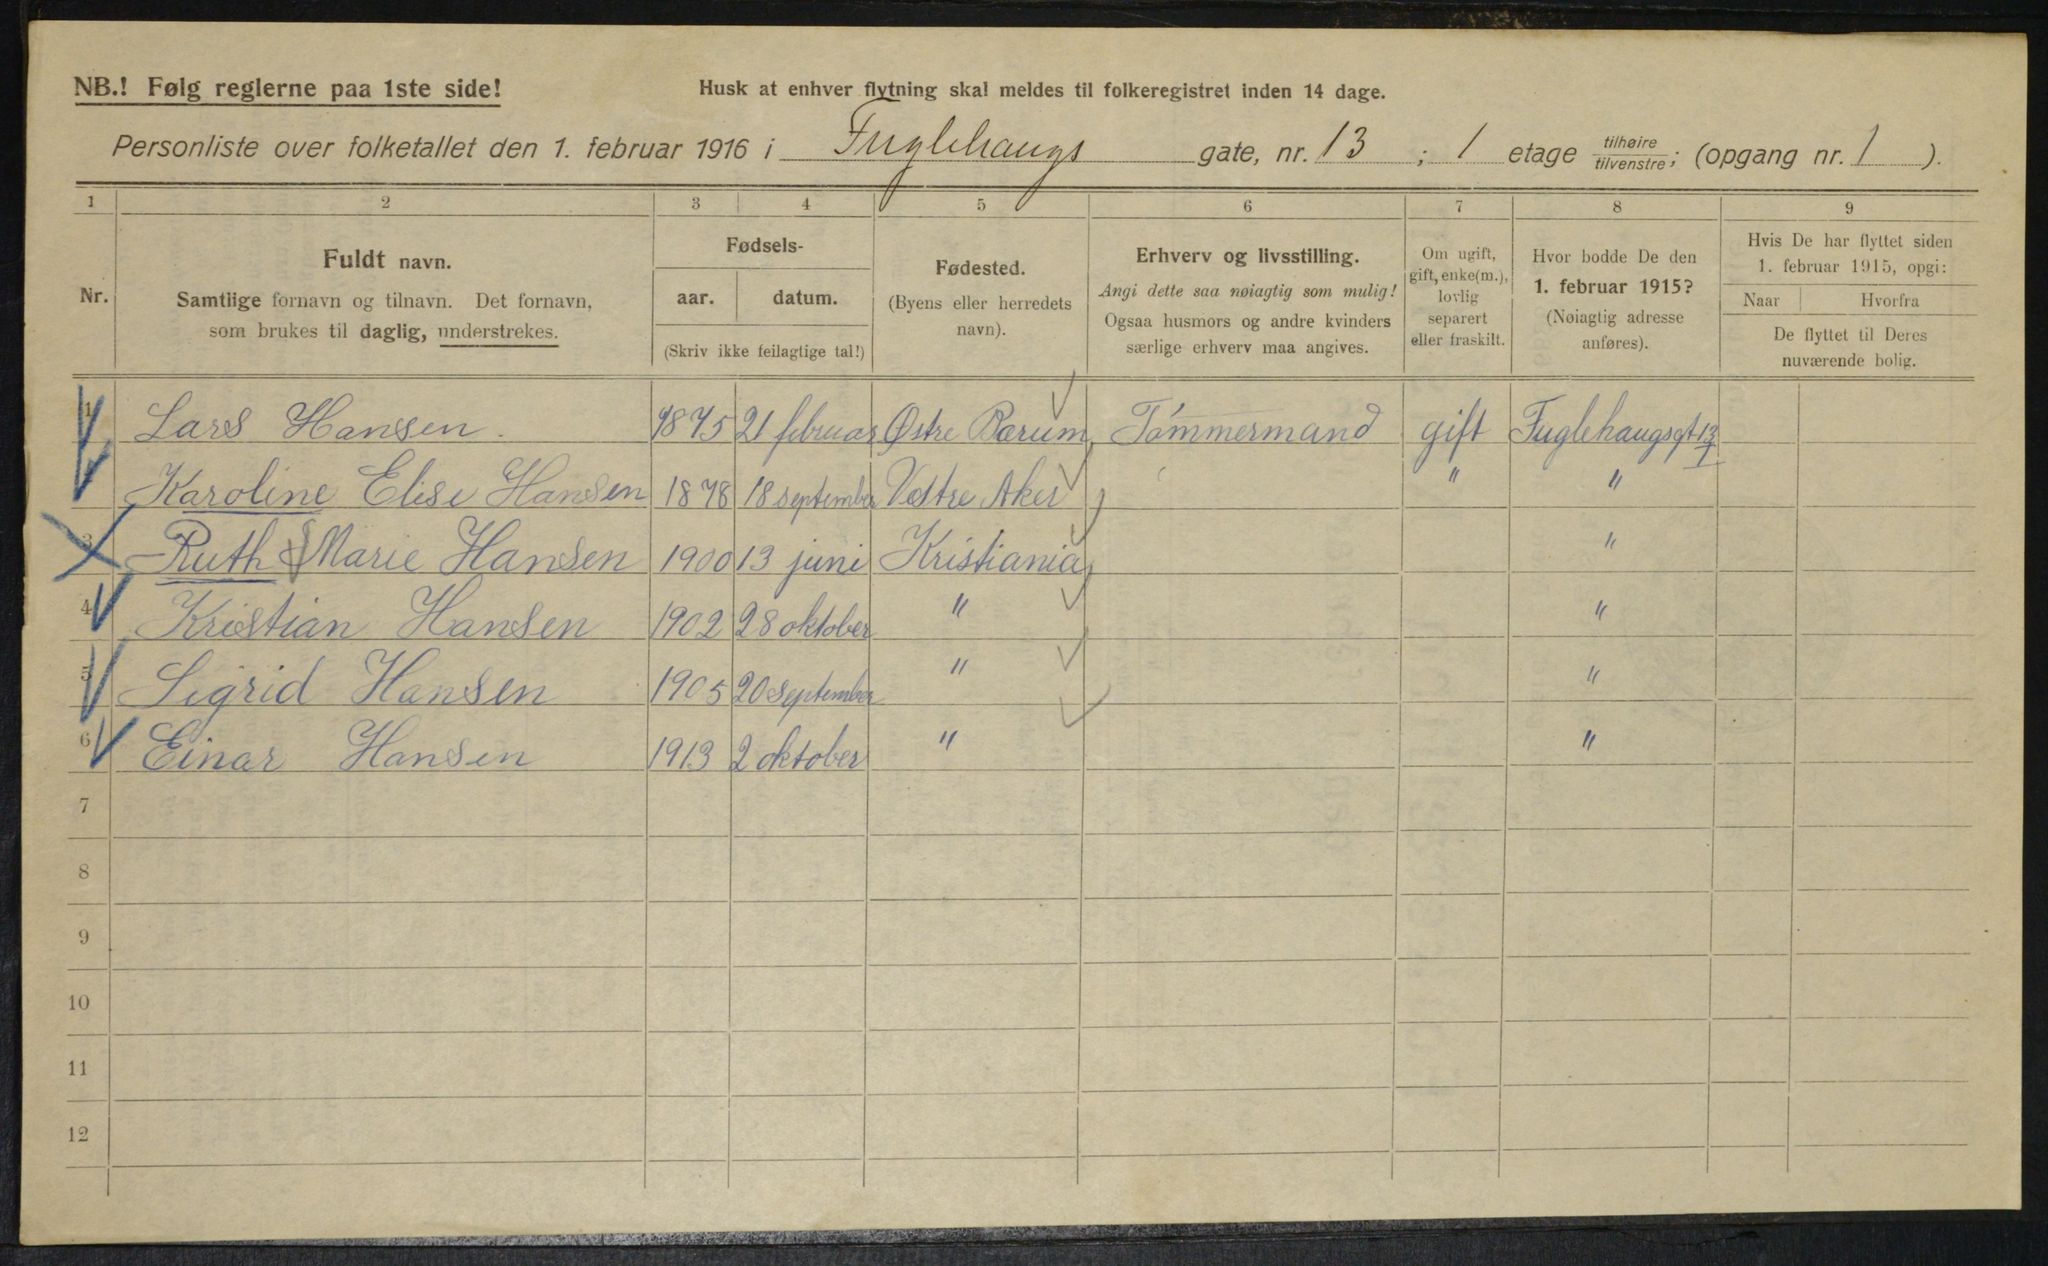 NB.! Følg reglerne paa 1ste side!
Husk at enhver flytning skal meldes til folkeregistret inden 14 dage.
Personliste over folketallet den 1. februar 1916 i Fuglehaugs gate, nr. 13 ; 1 etage tilhøire tilvenstre; (opgang nr. 1 ).
1 2 3 4 5 6 7 8 9
Nr.
Fuldt navn.
Samtlige fornavn og tilnavn. Det fornavn,
som brukes til daglig, understrekes.
Fødsels-
aar. datum.
(Skriv ikke feilagtige tal!)
Fødested.
(Byens eller herredets
navn).
Erhverv og livsstilling.
Angi dette saa nøiagtig som mulig!
Ogsaa husmors og andre kvinders
særlige erhverv maa angives.
Om ugift,
gift, enke(m.),
lovlig
separert
eller fraskilt.
Hvor bodde De den
1. februar 1915?
(Nøiagtig adresse
anføres).
Hvis De har flyttet siden
1. februar 1915, opgi:
Naar Hvorfra
De flyttet til Deres
nuværende bolig.
1 Lars Hansen. 1875 21 februar Østre Bærum Tømmermand gift Fuglehaugsgt 13/1
Karoline Elise Hansen 1878 18 september Vestre Aker " "
3 Ruth Marie Hansen 1900 13 juni Kristiania "
4 Kristian Hansen 1902 28 oktober " "
5 Sigrid Hansen 1905 20 september " "
6 Einar Hansen 1913 2 oktober " "
7
8
9
10
11
12